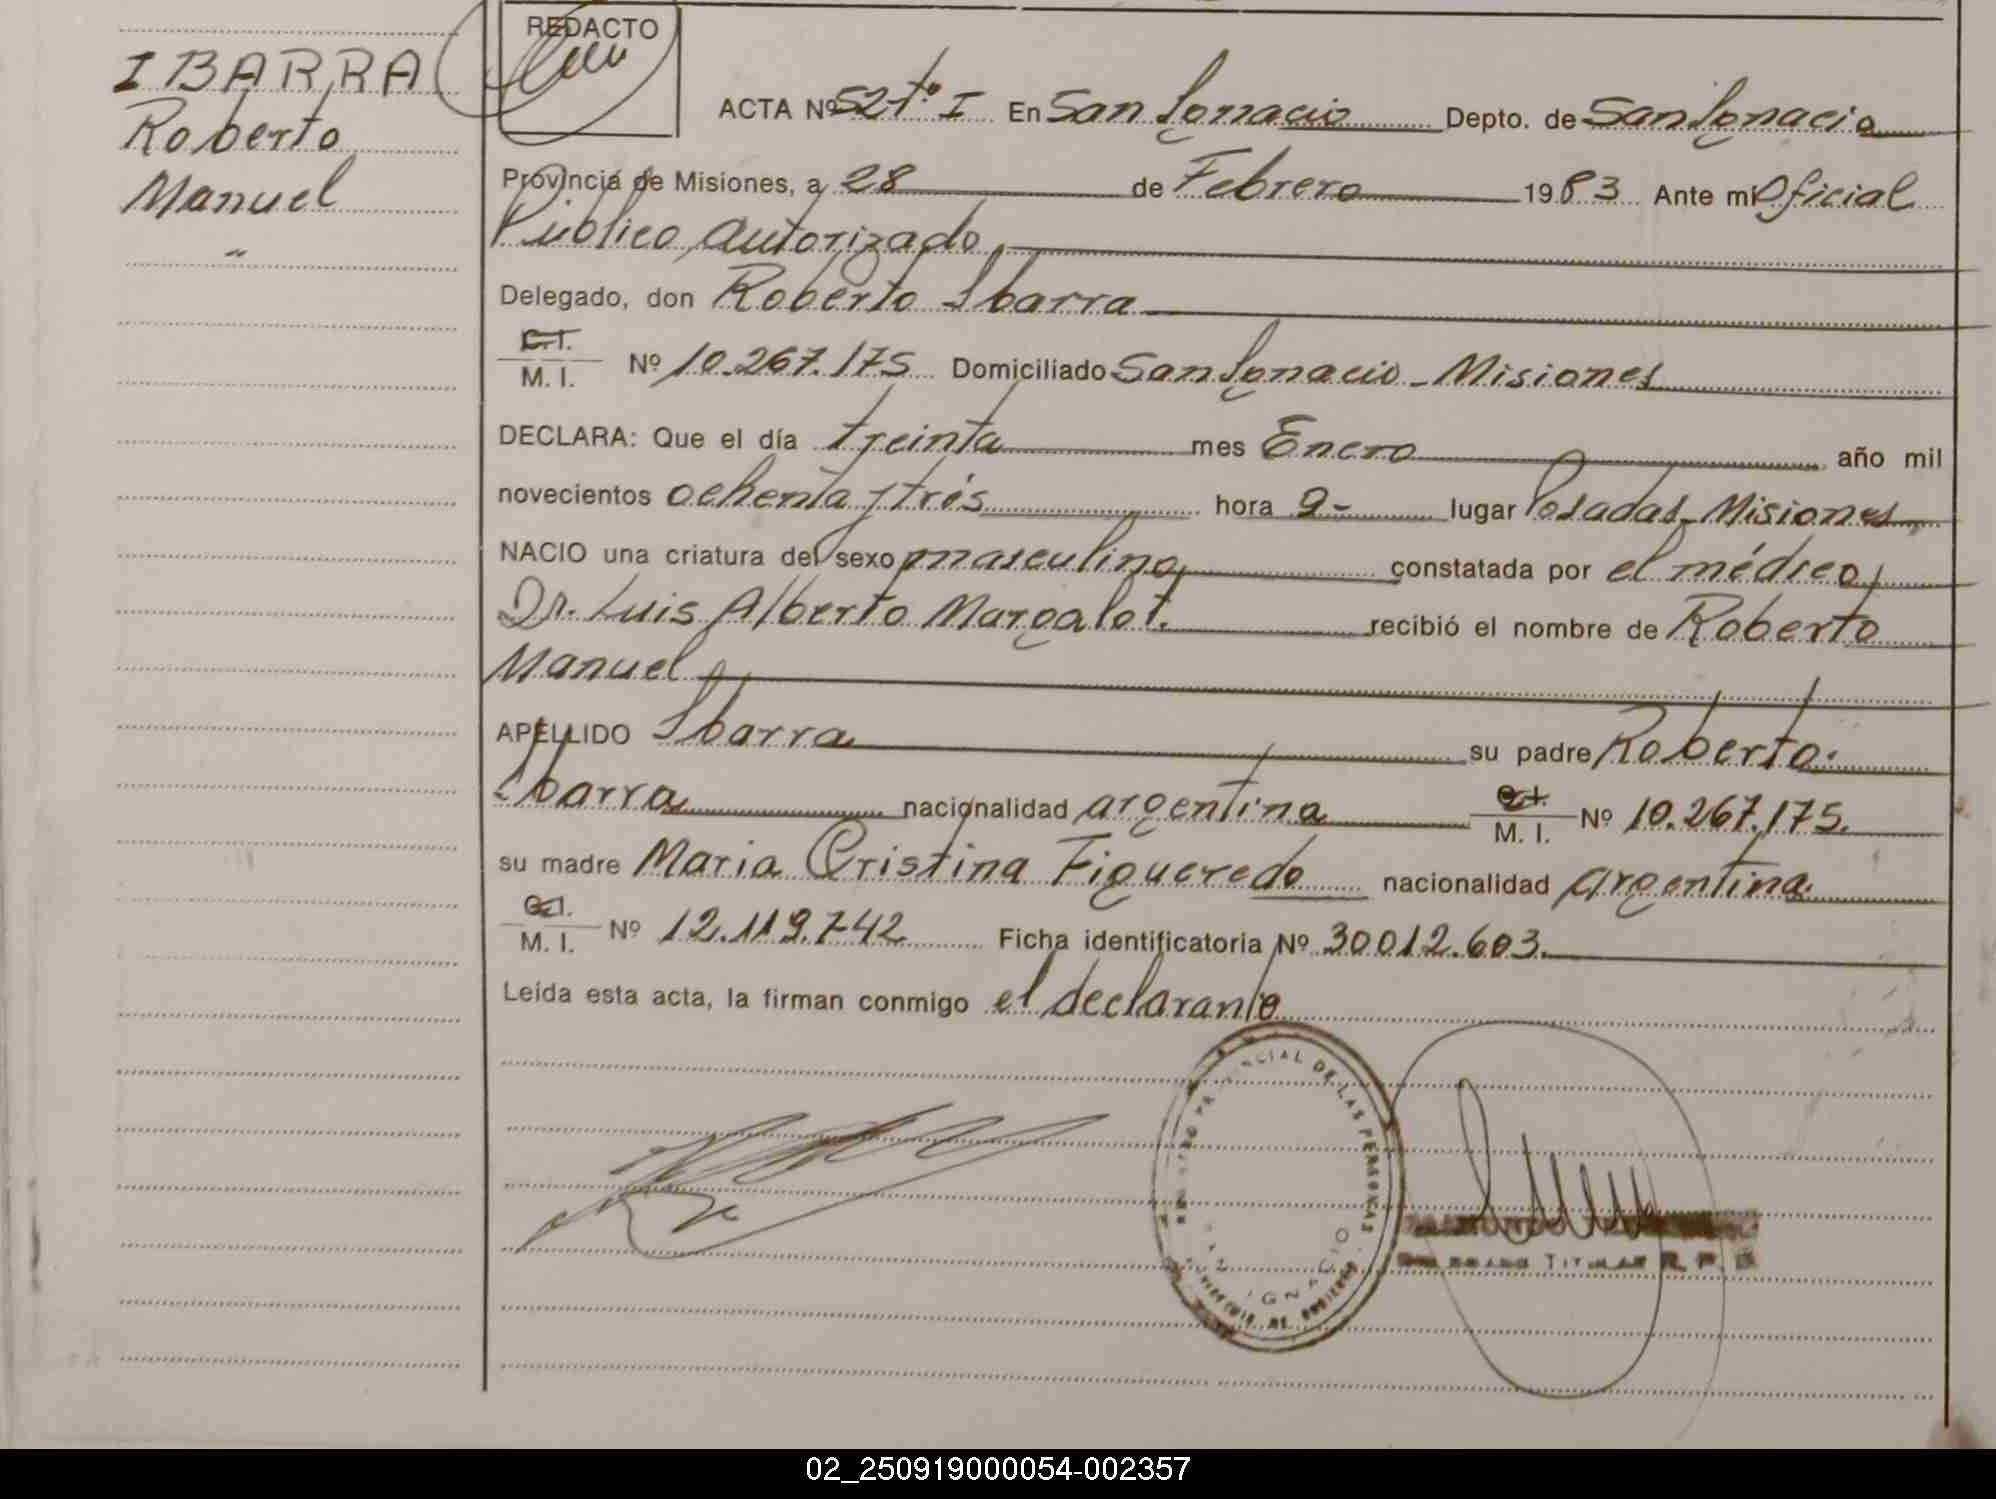 IBARRA
Roberto
Manuel
"
REDACTO
ACTA Nº 52 tº I En San Ignacio Depto. de San Ignacio
Provincia de Misiones, a 28 de Febrero 1983 Ante mi Oficial
Público Autorizado
Delegado, don Roberto Ibarra
C.I.
M. I. Nº 10.267.175 Domiciliado San Ignacio - Misiones
DECLARA: Que el día treinta mes Enero año mil
novecientos ochenta y trés hora 9- lugar Posadas - Misiones
NACIO una criatura del sexo masculino constatada por el médico
Dr. Luis Alberto Margalot. recibió el nombre de Roberto
Manuel
APELLIDO Ibarra su padre Roberto
Ibarra nacionalidad argentina C.I.
M. I. Nº 10.267.175.
su madre Maria Cristina Figueredo nacionalidad argentina.
C.I.
M. I. Nº 12.119.742 Ficha identificatoria Nº 30012.603.
Leída esta acta, la firman conmigo el declarante
DE LAS PERSONAS
SAN IGNACIO
TITULAR R. P.
02_250919000054-002357